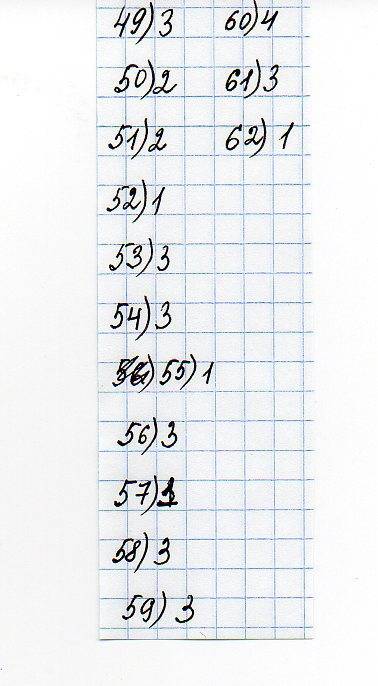 49) 3 60) 4
50) 2 61) 3
51) 2 62) 1
52) 1
53) 3
54) 3
55) 1
56) 3
57) 1
58) 3
59) 3